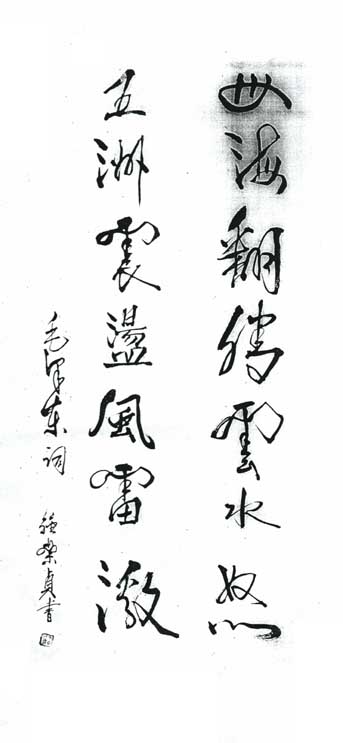 四海翻騰雲水怒
五洲震盪風雷激
毛澤东詞 貞書